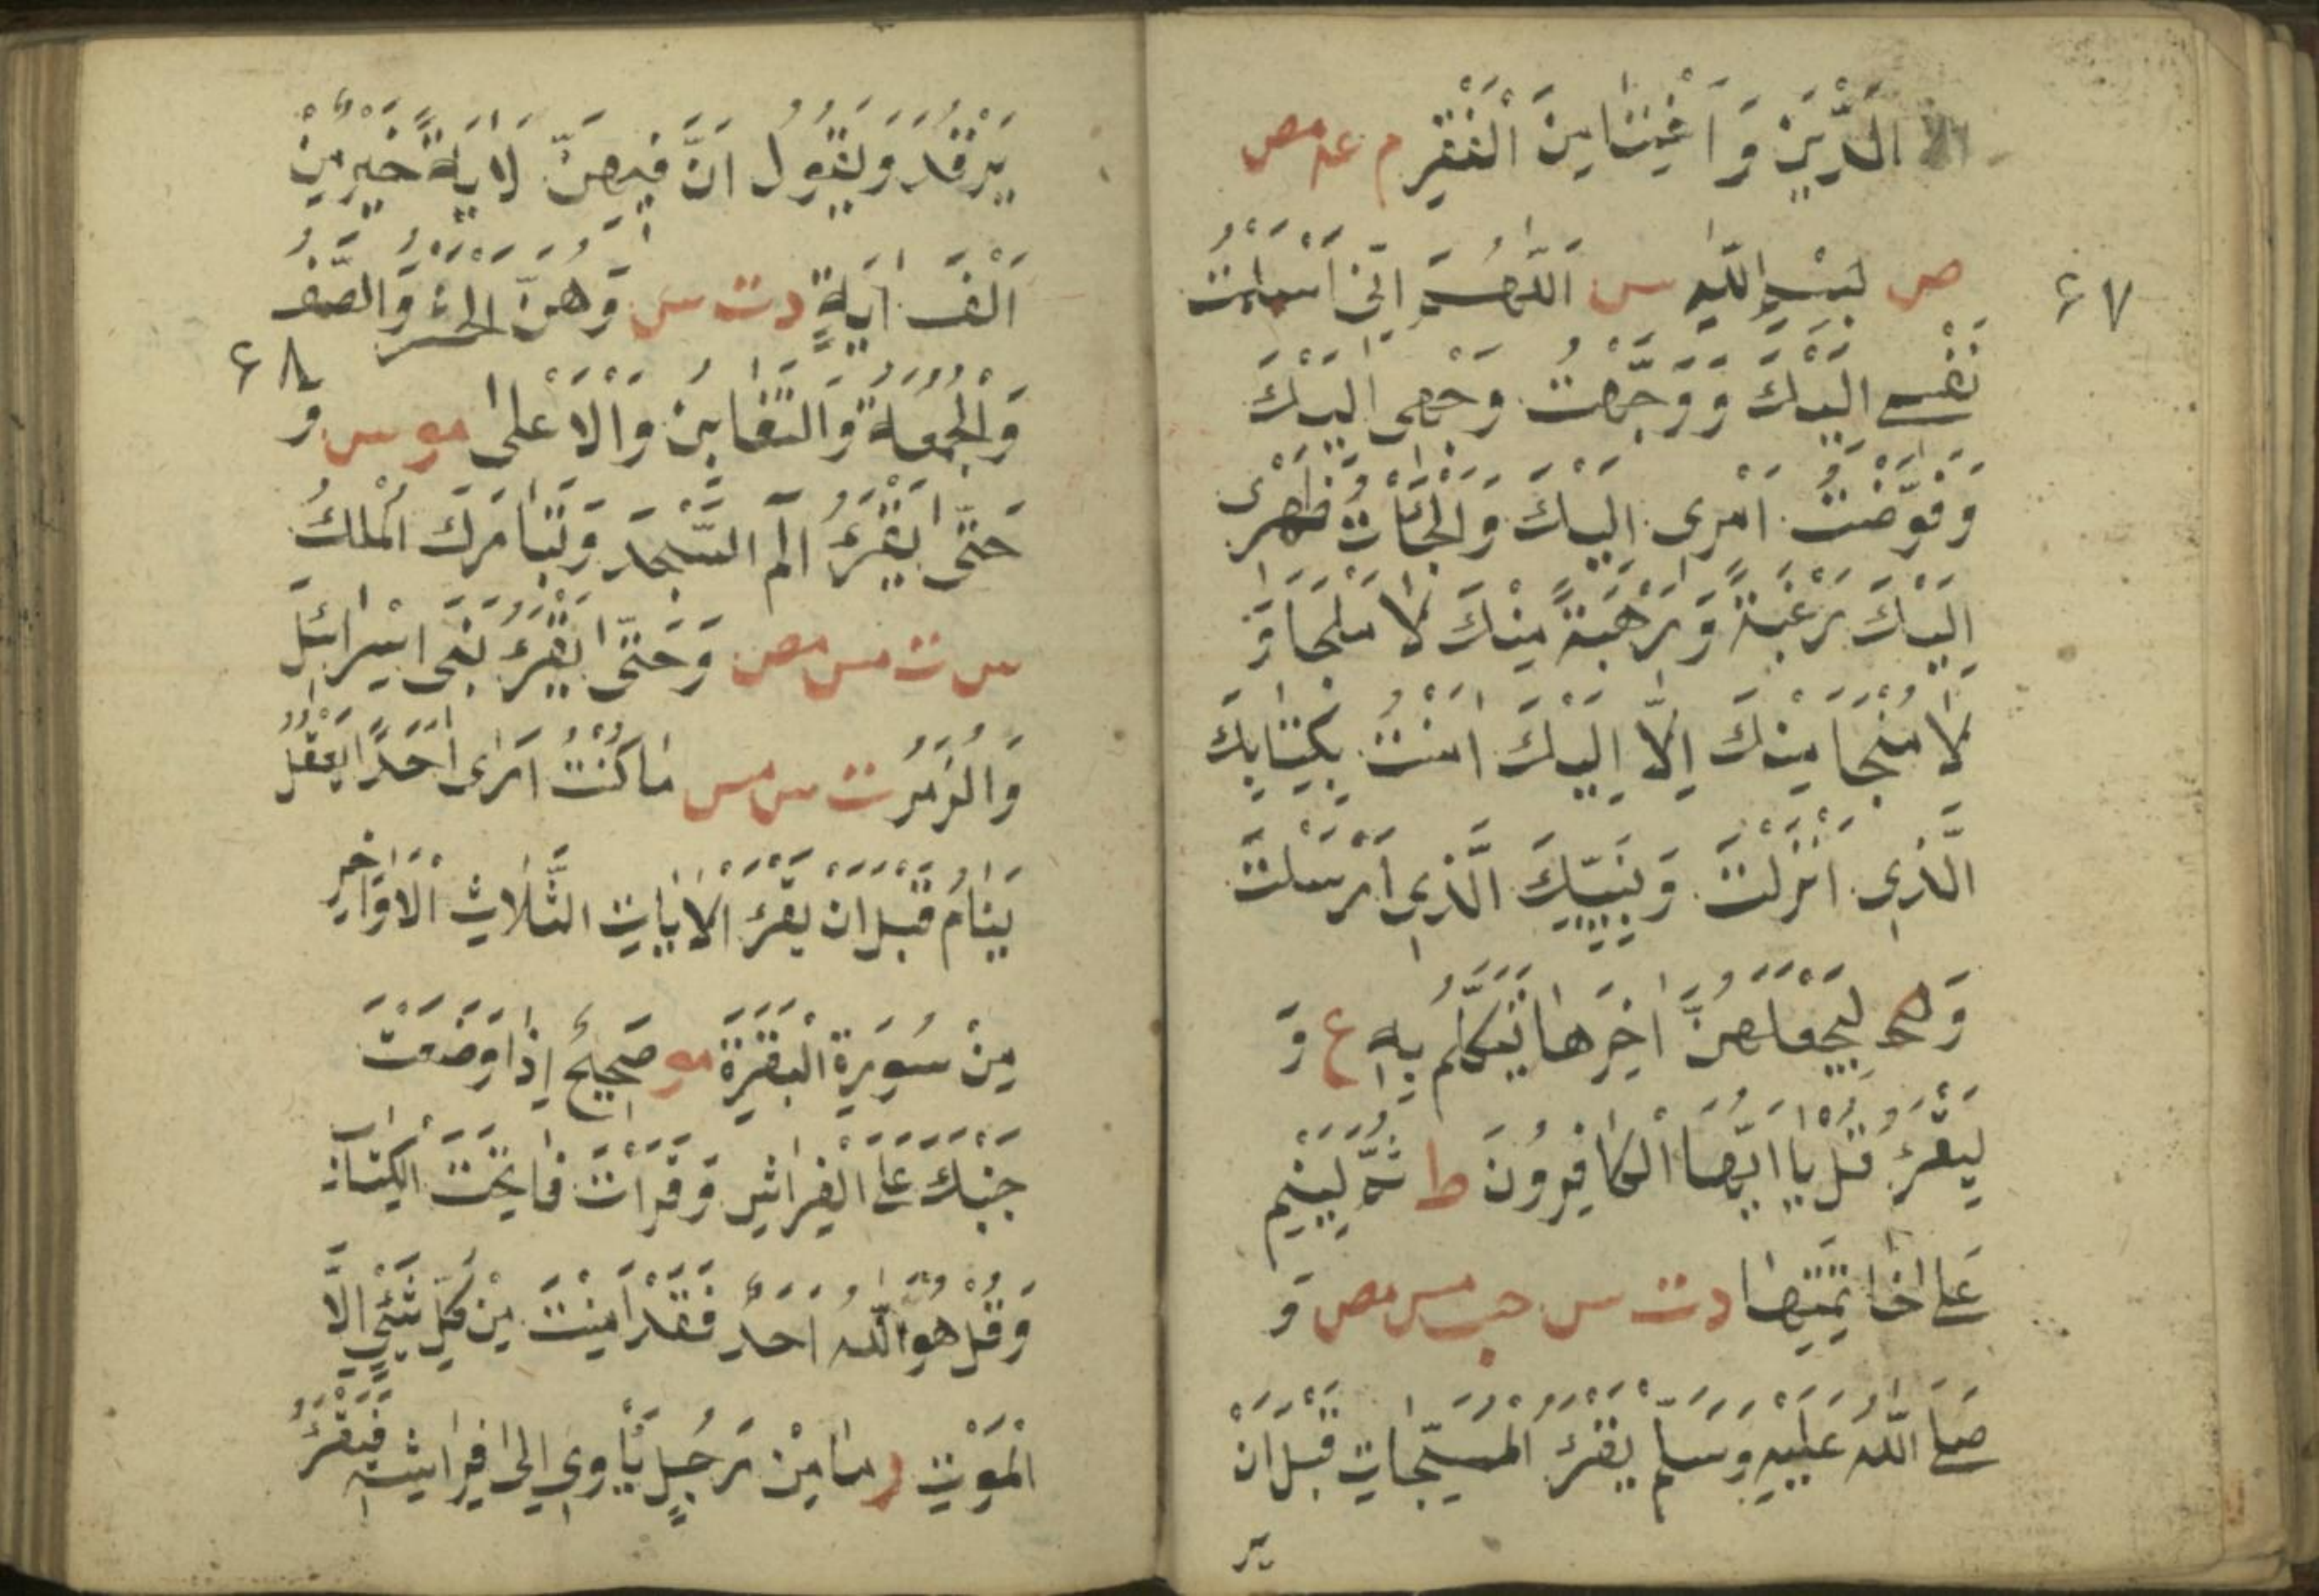 الدَّيْنِ وَاَغْنِنَا مِنَ الْفَقْرِ م عه مص
ص بِسْمِ اللّٰهِ س اَللّٰهُمَّ اِنِّى اَسْلَمْتُ
۶۷
نَفْسِى اِلَيْكَ وَوَجَّهْتُ وَجْهِى اِلَيْكَ
وَفَوَّضْتُ اَمْرِى اِلَيْكَ وَالْجَأْتُ ظَهْرِى
اِلَيْكَ رَغْبَةً وَرَهْبَةً مِنْكَ لَا مَلْجَاَ وَ
لَا مَنْجَا مِنْكَ اِلَّا اِلَيْكَ اٰمَنْتُ بِكِتَابِكَ
الَّذِى اَنْزَلْتَ وَبِنَبِيِّكَ الَّذِى اَرْسَلْتَ
لِيَجْعَلْهُنَّ اٰخِرَ مَا يَتَكَلَّمُ بِهِ ع وَ
لِيَقْرَءْ قُلْ يَا اَيُّهَا الْكَافِرُونَ ط ثُمَّ لِيَنَمْ
عَلٰى خَاتِمَتِهَا د ت س حب مس مص وَ
صَلَى اللّٰهُ عَلَيْهِ وَسَلَّمَ يَقْرَءُ الْمُسَبِّحَاتِ قَبْلَ اَنْ
ير
يَرْقُدَ وَيَقُولُ اَنَّ فِيهِنَّ لَاٰيَةً خَيْرٌ مِنْ
اَلْفَ اٰيَةٍ د ت س وَهُنَّ الْحَشْرُ وَالصَّفُ
۶۸
وَالْجُمُعَةُ وَالتَّغَابُنَ وَالْاَعْلٰى مو س وَ
حَتّٰى يَقْرَءُ الٓم السَّجْدَ وَتَبَارَكَ الْمُلْكُ
س ت مس مص وَحَتّٰى يَقْرَءُ بَنَى اِسْرَائِلَ
وَالزُّمَرُ ت س مس مَا كُنْتُ اَرٰى اَحَدًا يَعْقُلُ
يَنَامُ قَبْلَ اَنْ يَقْرَءَ الْاٰيَاتِ الثَّلَاثِ الْاَوَاخِرِ
مِنْ سُورَةِ الْبَقَرَةِ مو صَحِيحٌ اِذَا وَضَعْتَ
جَنْبَكَ عَلَى الْفِرَاشِ وَقَرَاْتَ فَاتِحَتَ الْكِتَابِ
وَقُلْ هُوَ اللّٰهُ اَحَدٌ فَقَدْ اَمِنْتَ مِنْ كُلِّ شَئْىٍ اِلَّا
الْمَوْتِ ر مَا مِنْ رَجُلٍ يَأْوِى اِلٰى فِرَاشِهِ فَيَقْرَءُ